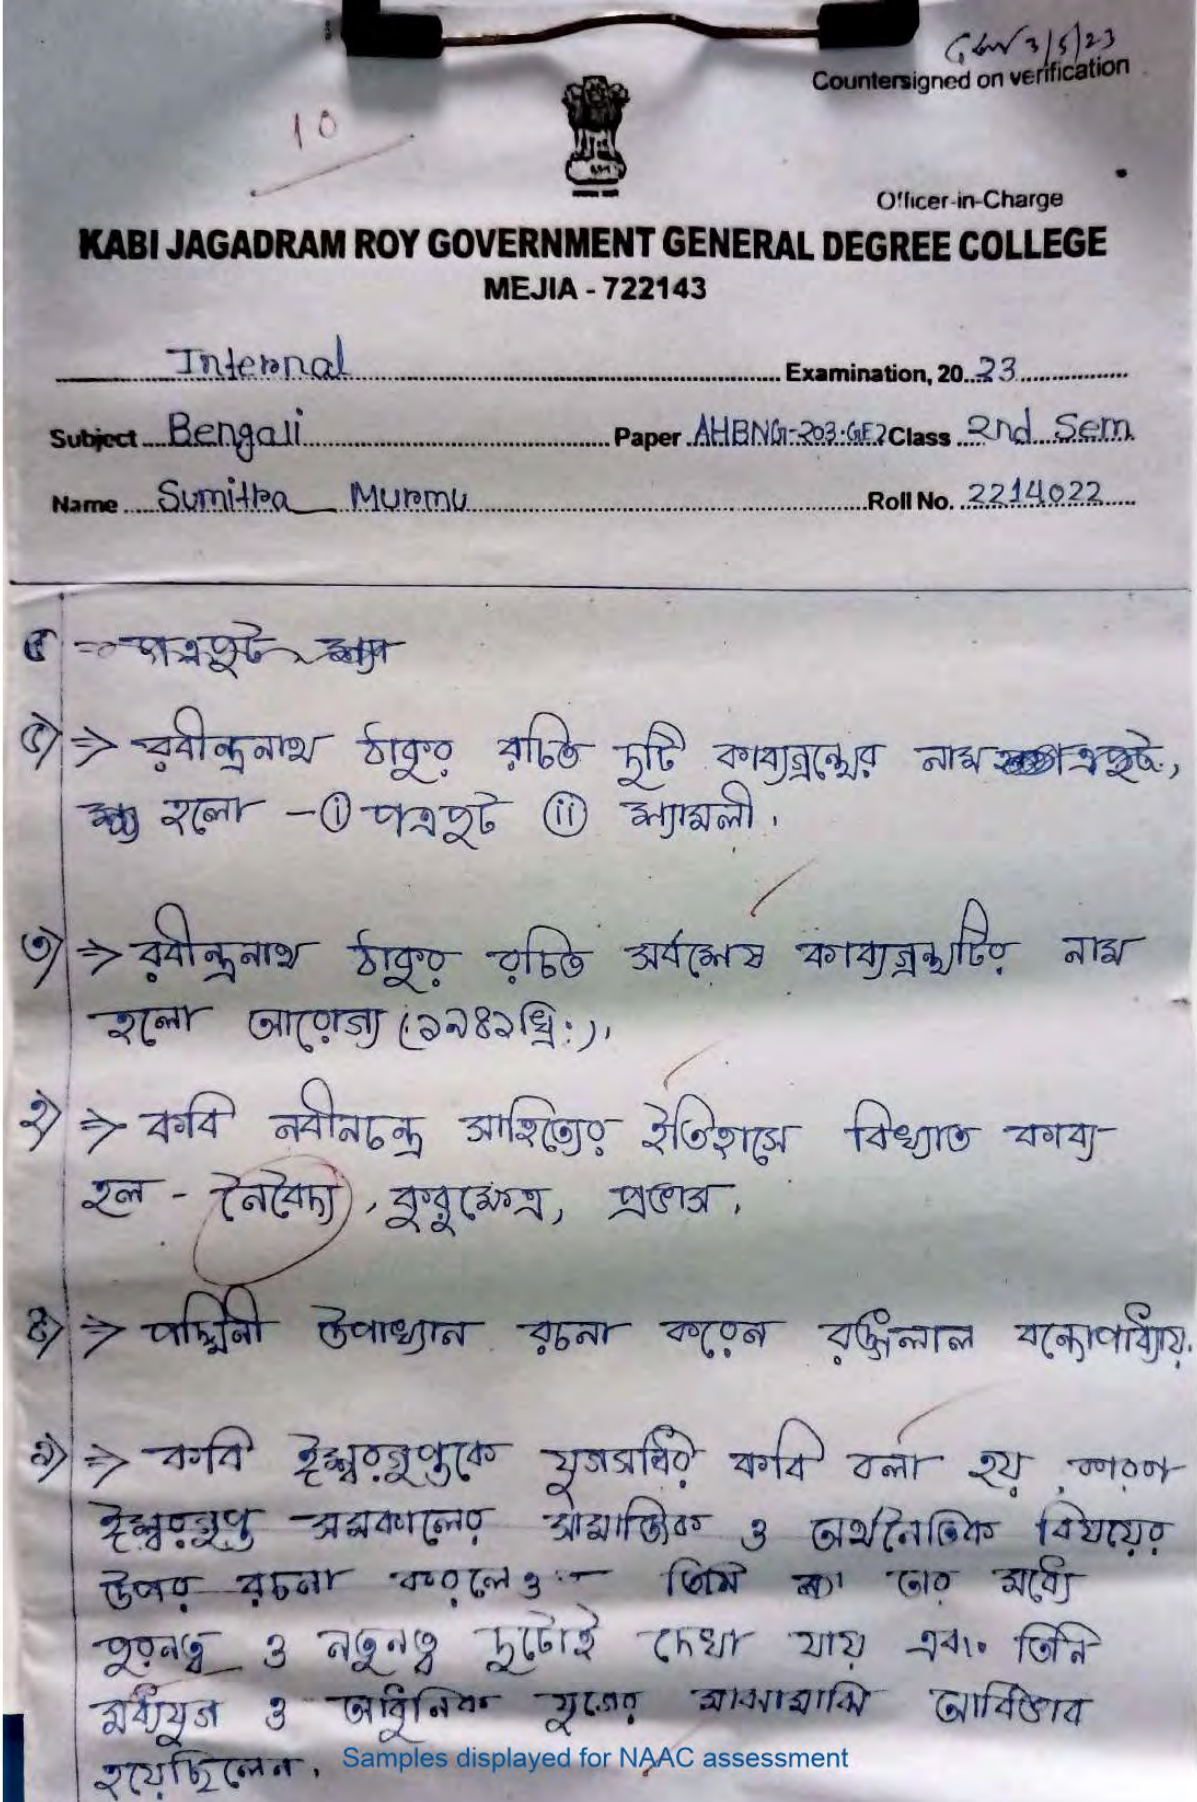 3/5/23
Countersigned on verification
10
Officer-in-Charge
KABI JAGADRAM ROY GOVERNMENT GENERAL DEGREE COLLEGE
MEJIA - 722143
Internal Examination, 2023
Subject Bengali Paper AHBNG-203-GE2 Class 2nd Sem
Name Sumitra Murmu Roll No. 2214022
⇒ পত্রপুট
৫) ⇒ রবীন্দ্রনাথ ঠাকুর রচিত দুটি কাব্যগ্রন্থের নাম
হলো - (i) পত্রপুট (ii) শ্যামলী।
৩) ⇒ রবীন্দ্রনাথ ঠাকুর রচিত সর্বশেষ কাব্যগ্রন্থটির নাম
হলো আরোগ্য (১৯৪১খ্রি:)।
২) ⇒ কবি নবীনচন্দ্র সাহিত্যের ইতিহাসে বিখ্যাত কাব্য
হল - নৈবেদ্য, কুরুক্ষেত্র, প্রভাস।
⇒ পদ্মিনী উপাখ্যান রচনা করেন রঙ্গলাল বন্দ্যোপাধ্যায়।
⇒ কবি ঈশ্বরগুপ্তকে যুগসন্ধির কবি বলা হয় কারণ
ঈশ্বরগুপ্ত সমকালের সামাজিক ও অর্থনৈতিক বিষয়ের
উপর রচনা করলেও - তিনি তার মধ্যে
পুরনত্ব ও নতুনত্ব দুটোই দেখা যায় এবং তিনি
মধ্যযুগ ও আধুনিক যুগের মাঝামাঝি আবির্ভাব
হয়েছিলেন।
Samples displayed for NAAC assessment